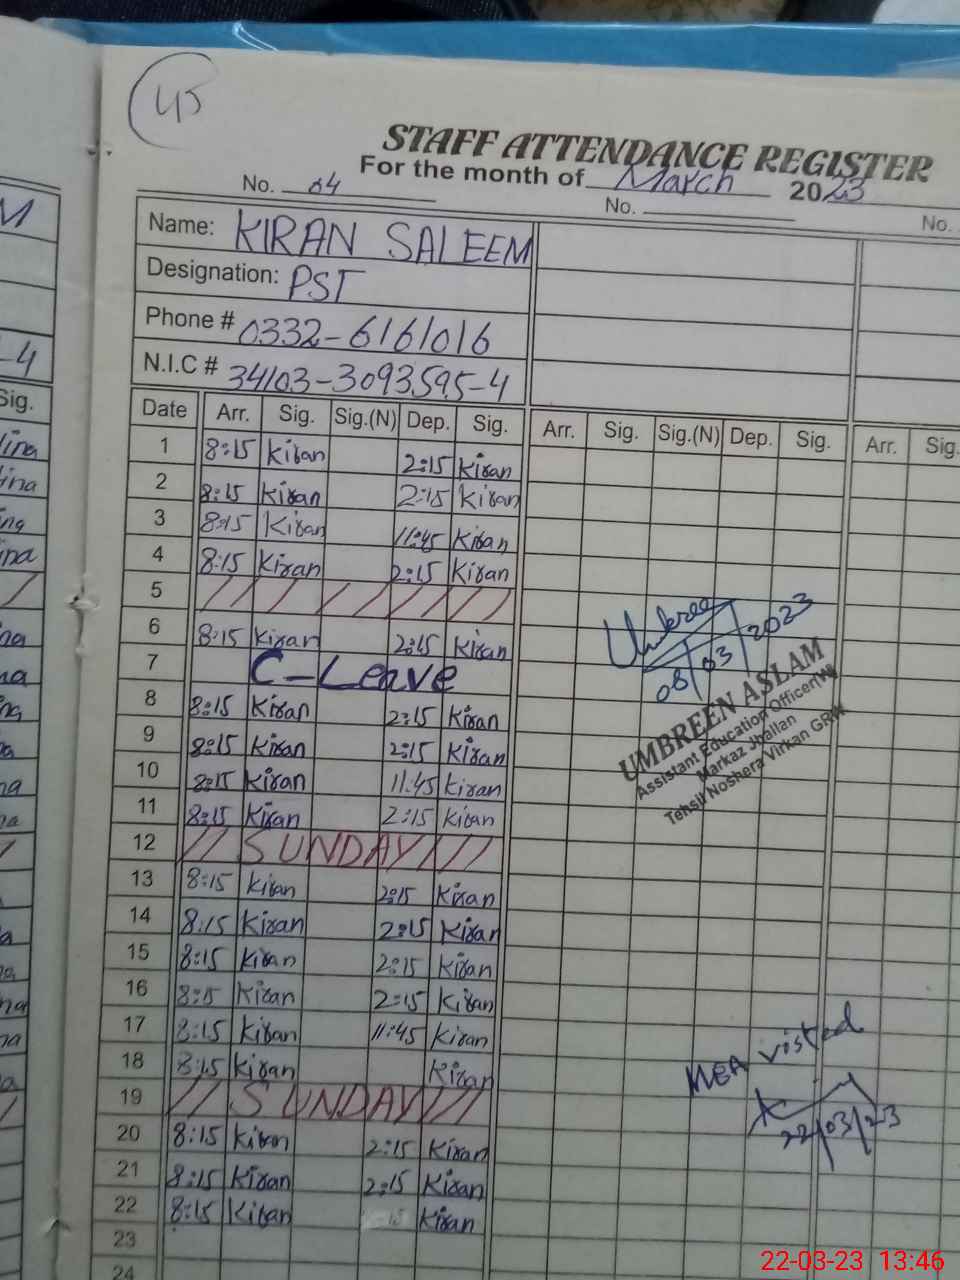 45
STAFF ATTENDANCE REGISTER
For the month of March 2023
No. 04 No. No.
Name: KIRAN SALEEM
Designation: PST
Phone # 0332-6161016
N.I.C # 34103-3093595-4
Date Arr. Sig. Sig.(N) Dep. Sig. Arr. Sig. Sig.(N) Dep. Sig. Arr. Sig.
1 8:15 Kiran 2:15 Kiran
2 8:15 Kiran 2:15 Kiran
3 8:15 Kiran 11:45 Kiran
4 8:15 Kiran 2:15 Kiran
5
6 8:15 Kiran 2:15 Kiran
7 C-Leave
8 8:15 Kiran 2:15 Kiran
9 8:15 Kiran 2:15 Kiran
10 8:15 Kiran 11:45 Kiran
11 8:15 Kiran 2:15 Kiran
12 SUNDAY
13 8:15 Kiran 2:15 Kiran
14 8:15 Kiran 2:15 Kiran
15 8:15 Kiran 2:15 Kiran
16 8:15 Kiran 2:15 Kiran
17 8:15 Kiran 11:45 Kiran
18 8:15 Kiran Kiran
19 SUNDAY
20 8:15 Kiran 2:15 Kiran
21 8:15 Kiran 2:15 Kiran
22 8:15 Kiran Kiran
23
24
Umbreen
08/03/2023
UMBREEN ASLAM
Assistant Education Officer(W)
Markaz Jhallan
Tehsil Noshera Virkan GRW
MEA visted
22/03/23
22-03-23 13:46